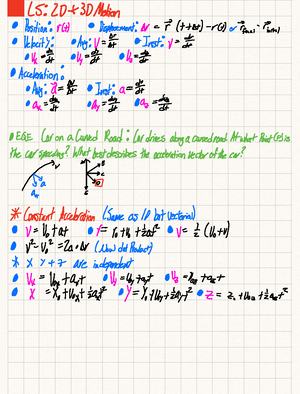 L5: 2D + 3D Motion
Position: r(t) Displacement: Δr = r (t+Δt) - r(t) or
Velocity: Avg: V = Δr/Δt Inst: v = dr/dt
Vx = dx/dt Vy = dy/dt Vz = dz/dt
Acceleration:
Avg: a = Δv/Δt Inst: a = dv/dt
ax = dvx/dt ay = dvy/dt az = dvz/dt
Car on a Curved Road: Car drives along a curved road. At what Point(s) is
the car speeding? What best describes the acceleration vector of the car?
* Constant Acceleration (Same as 1D but Vectorial)
V = V0 + at r = r0 + V0t + ½at² V = ½ (V0+V)
V² - V0² = 2a · Δr (Now dot Product)
* X Y + Z are independent
Vx = V0x + axt Vy = V0y + ayt Vz = V0z + azt
X = X0 + V0xt + ½axt² Y = Y0 + V0yt + ½ayt² Z = Z0 + V0zt + ½azt²